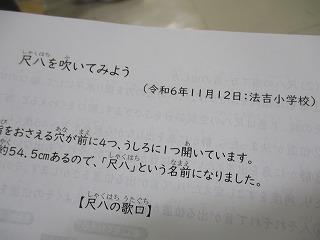 尺八を吹いてみよう
(令和6年11月12日：法吉小学校)
をおさえる穴が前に4つ、うしろに1つ開いています。
54.5cmあるので、「尺八」という名前になりました。
【尺八の歌口】